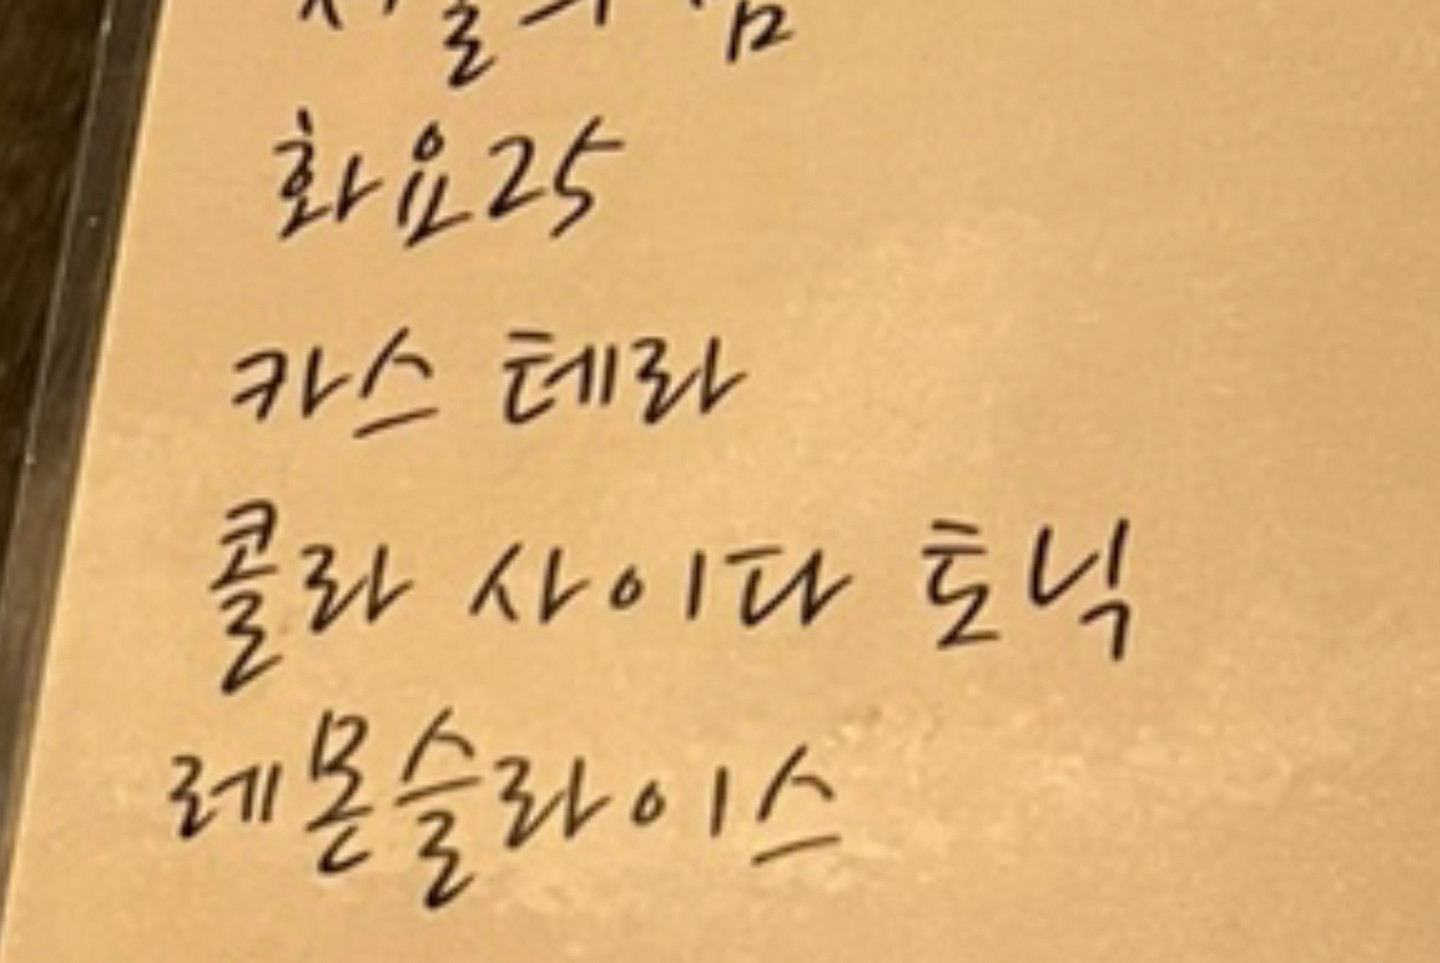 화요25
카스 테라
콜라 사이다 토닉
레몬슬라이스